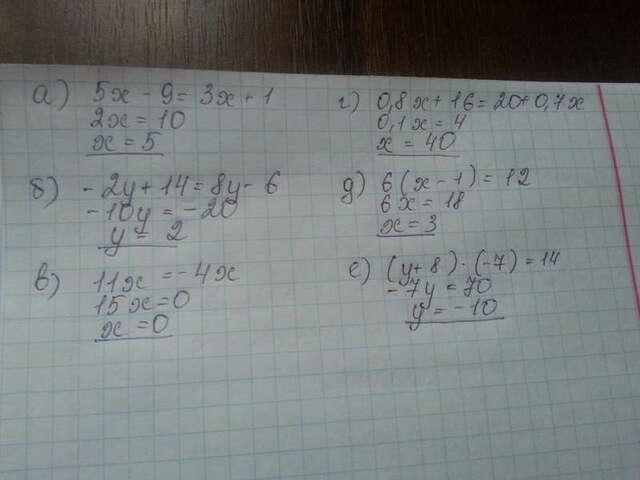 а) 5x - 9 = 3x + 1
2x = 10
x = 5
б) - 2y + 14 = 8y - 6
- 10y = - 20
y = 2
в) 11x = - 4x
15x = 0
x = 0
г) 0,8x + 16 = 20 + 0,7x
0,1x = 4
x = 40
д) 6(x - 1) = 12
6x = 18
x = 3
е) (y + 8) · (-7) = 14
- 7y = 70
y = - 10